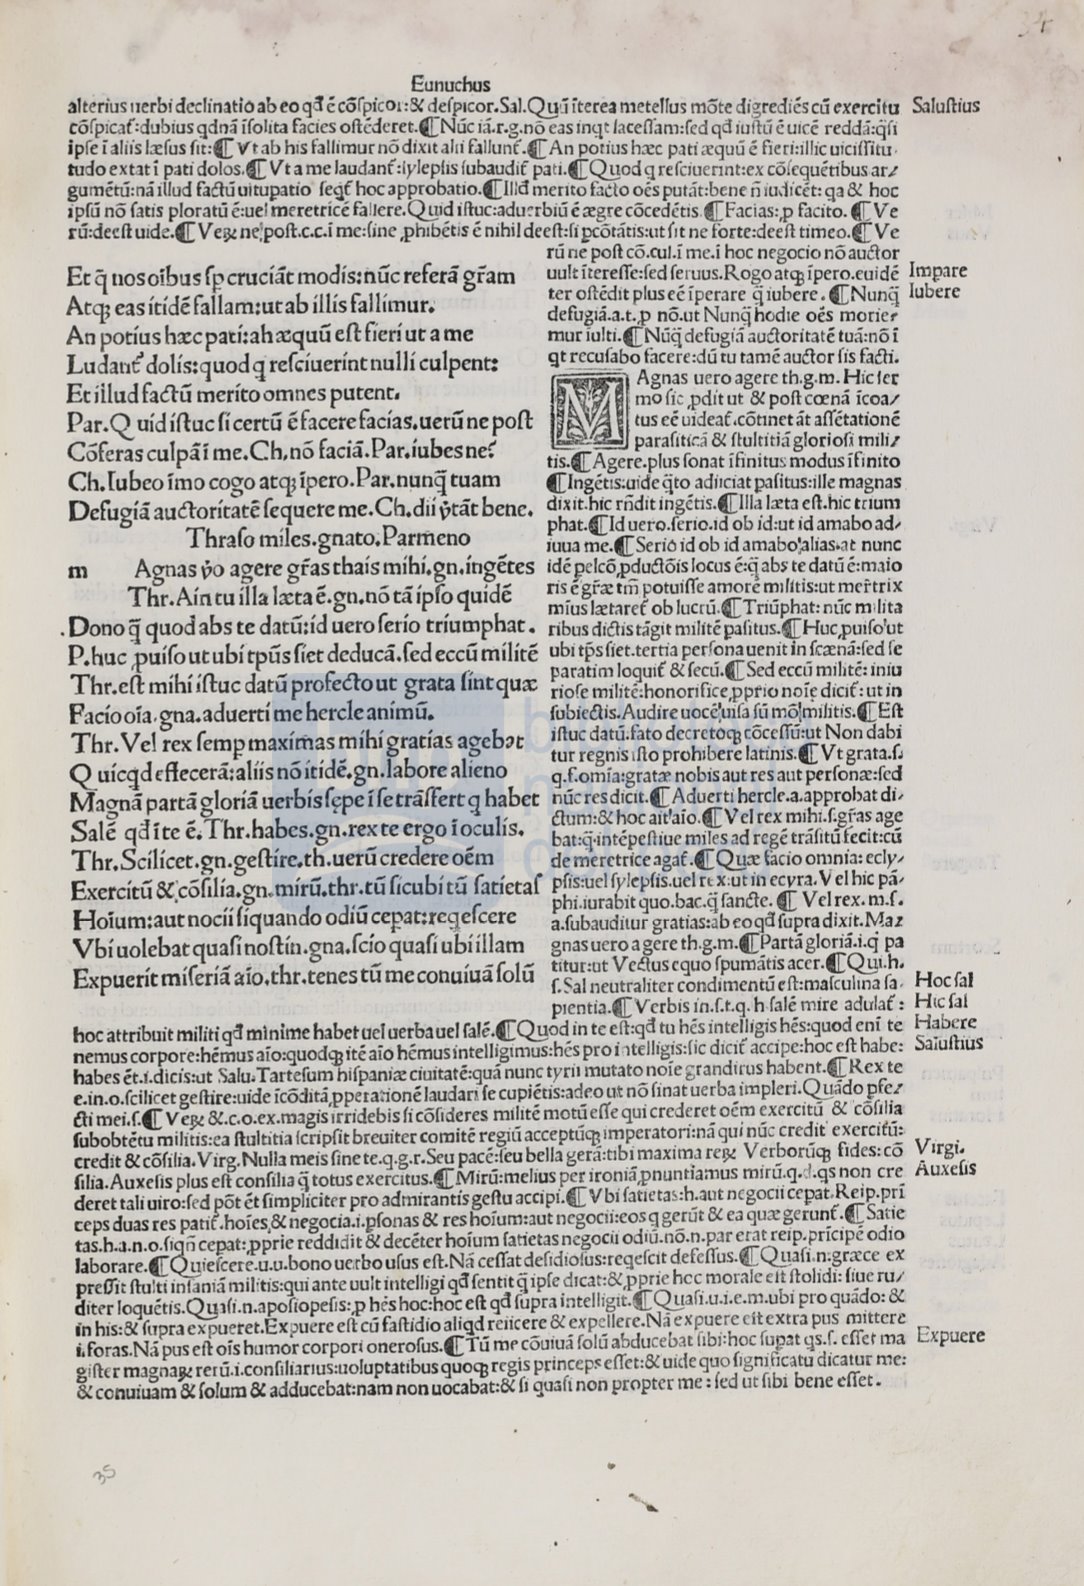 34
Eunuchus
alterius uerbi declinatio ab eo qđ ē cōspicor:& despicor.Sal.Quū īterea metellus mōte digrediēs cū exercitu Salustius
cōspicať:dubius qdnā īsolita facies ostēderet.¶Nūc iā.r.g.nō eas inqt lacessam:sed qđ iustū ē uicē reddā:q̄si
ipse ī aliis læsus sit:¶Vt ab his fallimur nō dixit alii fallunť.¶An potius hæc pati æquū ē fieri:illic uicissitu-
tudo extat ī pati dolos.¶Vt a me laudanť:sylepsis subaudiť pati.¶Quod q resciuerint:ex cōsequētibus ar/
gumētū:nā illud factū uitupatio seqť hoc approbatio.¶Illđ merito facto oēs putāt:bene n̄ iudicēt:qa & hoc
ipsū nō satis ploratū ē:uel meretricē fallere.Quid istuc:aduerbiū ē ægre cōcedētis.¶Facias:ꝓ facito.¶Ve
rū:deest uide.¶Veꝝ ne post.c.c.ī me:sine ꝓhibētis ē nihil deest:si ꝑcōtātis:ut sit ne forte:deest timeo.¶Ve
rū ne post cō.cul.ī me.ī hoc negocio nō auctor
uult īteresse:sed seruus.Rogo atqꝫ īpero.euidē Impare
ter ostēdit plus eē īperare q̄ iubere.¶Nunq̄ Iubere
defugiā.a.t.ꝓ nō.ut Nunq̄ hodie oēs morier
mur iulti.¶Nūq̄ defugiā auctoritatē tuā:nō ī
qt recusabo facere:dū tu tamē auctor sis facti.
MAgnas uero agere th.g.m.Hic ser
mo sic ꝓdit ut & post cœnā īcoa/
tus eē uideať.cōtinet āt assētationē
parasiticā & stultitiā gloriosi mili/
tis.¶Agere.plus sonat īfinitus modus īfinito
¶Ingētis:uide q̄to adiiciat pasitus:ille magnas
dixit.hic rñdit ingētis.¶Illa læta est.hic trium
phat.¶Id uero.serio.id ob id:ut id amabo ad/
iuua me.¶Serio id ob id amabo alias.at nunc
idē pelcō ꝓductōis locus ē:q̄ abs te datū ē:maio
ris ē gřæ tm̄ potuisse amorē militis:ut meřtrix
mīus lætareť ob lucrū.¶Triūphat:nūc milita
ribus dictis tāgit militē pasitus.¶Huc ꝓuiso ut
ubi tp̄s siet.tertia persona uenit in scænā:sed se
paratim loquiť & secū.¶Sed eccū militē:iniu
riose militē:honorifice ꝓprio noīe diciť:ut in
subiectis.Audire uocē uisa sū mō militis.¶Est
istuc datū.fato decretoqꝫ cōcessū:ut Non dabi
tur regnis isto prohibere latinis.¶Vt grata.s.
q.f.omīa:gratæ nobis aut res aut personæ:sed
nūc res dicit.¶Aduerti hercle.a.approbat di/
ctum:& hoc ait aīo.¶Vel rex mihi.s.gřas age
bat:q̄ intēpestiue miles ad regē trāsitū fecit:cū
de meretrice agať.¶Quæ facio omnia:ecly/
psis:uel sylepsis.uel rex:ut in ecyra.Vel hic pā/
phi.iurabit quo.bac.q̄ sancte.¶Vel rex.m.s.
a.subauditur gratias:ab eo qđ supra dixit.Ma2
gnas uero agere th.g.m.¶Partā gloriā.i.q̄ pa
titur:ut Vectus equo spumātis acer.¶Qui.h.
s.Sal neutraliter condimentū est:masculina sa- Hoc sal
pientia.¶Verbis in.s.t.q.h.salē mire adulať: Hic sal
Et q̄ nos oībus sꝑ cruciāt modis:nūc referā gřam
Atqꝫ eas itidē fallam:ut ab illis fallimur.
An potius hæc pati:ah æquū est fieri ut a me
Ludanť dolis:quod q resciuerint nulli culpent:
Et illud factū merito omnes putent.
Par.Quid istuc si certū ē facere facias.uerū ne post
Cōferas culpā ī me.Ch.nō faciā.Par.iubes ne?
Ch.Iubeo īmo cogo atqꝫ īpero.Par.nunq̄ tuam
Defugiā auctoritatē sequere me.Ch.dii ṽtāt bene.
Thraso miles.gnato.Parmeno
m Agnas ṽo agere gřas thais mihi.gn.ingētes
Thr.Ain tu illa læta ē.gn.nō tā ipso quidē
.Dono q̄ quod abs te datū:id uero serio triumphat.
P.huc ꝓuiso ut ubi tpūs siet deducā.sed eccū militē
Thr.est mihi istuc datū profecto ut grata sint quæ
Facio oīa.gna.aduerti me hercle animū.
Thr.Vel rex semꝑ maximas mihi gratias agebat
Quicqd effecerā:aliis nō itidē.gn.labore alieno
Magnā partā gloriā uerbis sępe ī se trāsfert q habet
Salē qđ ī te ē.Thr.habes.gn.rex te ergo ī oculis.
Thr.Scilicet.gn.gestire.th.uerū credere oēm
Exercitū & cōsilia.gn.mirū.thr.tū sicubi tū satietas
Hoīum:aut nocii siquando odiū cepat:reqescere
Vbi uolebat quasi nostin.gna.scio quasi ubi illam
Expuerit miseriā aīo.thr.tenes tū me conuiuā solū
hoc attribuit militi qđ minime habet uel uerba uel salē.¶Quod in te est:qđ tu hēs intelligis hēs:quod enī te Habere
nemus corpore:hēmus aīo:quodqꝫ itē aīo hēmus intelligimus:hēs pro intelligis:sic diciť accipe:hoc est habe: Salustius
habes ēt.i.dicis:ut Salu.Tartesum hispaniæ ciuitatē:quā nunc tyrii mutato noīe grandirus habent.¶Rex te
e.in.o.scilicet gestire:uide īcōditā ꝓperationē laudari se cupiētis:adeo ut nō sinat uerba impleri.Quādo pfe/
cti mei.s.¶Veꝝ &.c.o.ex.magis irridebis si cōsideres militē motū esse qui crederet oēm exercitū & cōsilia
subobtētu militis:ea stultitia scripsit breuiter comitē regiū acceptūqꝫ imperatori:nā qui nūc credit exercitū:
credit & cōsilia.Virg.Nulla meis sine te.q.g.r.Seu pacē:seu bella gerā:tibi maxima reꝝ Verborūqꝫ fides:cō Virgi.
silia.Auxesis plus est consilia q̄ totus exercitus.¶Mirū:melius per ironiā ꝓnuntiamus mirū.q.d.qs non cre Auxesis
deret tali uiro:sed pōt ēt simpliciter pro admirantis gestu accipi.¶Vbi satietas:h.aut negocii cepat.Reip.prī
ceps duas res patiť.hoīes & negocia.i.ꝑsonas & res hoīum:aut negocii:eos q gerūt & ea quæ gerunť.¶Satie
tas.h.a.n.o.siqñ cepat:ꝓprie reddidit & decēter hoīum satietas negocii odiū.nō.n.par erat reip.prīcipē odio
laborare.¶Quiescere.u.u.bono uerbo usus est.Nā cessat desidiosus:reqescit defessus.¶Quasi.n:græce ex
pressit stulti insaniā militis:qui ante uult intelligi qđ sentit q̄ ipse dicat:& ꝓprie hoc morale est stolidi:siue ru/
diter loquētis.Quasi.n.aposiopesis:ꝓ hēs hoc:hoc est qđ supra intelligit.¶Quasi.u.i.e.m.ubi pro quādo:&
in his:& supra expueret.Expuere est cū fastidio aliqd reiicere & expellere.Nā expuere est extra pus mittere Expuere
i.foras.Nā pus est oīs humor corpori onerosus.¶Tū me cōuiuā solū abducebat sibi:hoc supat qs.s.esset ma
gister magnaꝝ rerū.i.consiliarius:uoluptatibus quoqꝫ regis princeps esset:& uide quo significatu dicatur me:
& conuiuam & solum & adducebat:nam non uocabat:& si quasi non propter me:sed ut sibi bene esset.
35